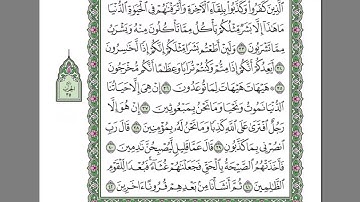 الَّذِينَ كَفَرُوا وَكَذَّبُوا بِلِقَاءِ الْآخِرَةِ وَأَتْرَفْنَاهُمْ فِي الْحَيَاةِ الدُّنْيَا
مَا هَٰذَا إِلَّا بَشَرٌ مِّثْلُكُمْ يَأْكُلُ مِمَّا تَأْكُلُونَ مِنْهُ وَيَشْرَبُ
مِمَّا تَشْرَبُونَ ٣٣ وَلَئِنْ أَطَعْتُم بَشَرًا مِّثْلَكُمْ إِنَّكُمْ إِذًا لَّخَاسِرُونَ
٣٤ أَيَعِدُكُمْ أَنَّكُمْ إِذَا مِتُّمْ وَكُنتُمْ تُرَابًا وَعِظَامًا أَنَّكُم مُّخْرَجُونَ
٣٥ هَيْهَاتَ هَيْهَاتَ لِمَا تُوعَدُونَ ٣٦ إِنْ هِيَ إِلَّا حَيَاتُنَا
الدُّنْيَا نَمُوتُ وَنَحْيَا وَمَا نَحْنُ بِمَبْعُوثِينَ ٣٧ إِنْ هُوَ إِلَّا
رَجُلٌ افْتَرَىٰ عَلَى اللَّهِ كَذِبًا وَمَا نَحْنُ لَهُ بِمُؤْمِنِينَ ٣٨ قَالَ رَبِّ
انصُرْنِي بِمَا كَذَّبُونِ ٣٩ قَالَ عَمَّا قَلِيلٍ لَّيُصْبِحُنَّ نَادِمِينَ ٤٠
فَأَخَذَتْهُمُ الصَّيْحَةُ بِالْحَقِّ فَجَعَلْنَاهُمْ غُثَاءً فَبُعْدًا لِّلْقَوْمِ
الظَّالِمِينَ ٤١ ثُمَّ أَنشَأْنَا مِن بَعْدِهِمْ قُرُونًا آخَرِينَ ٤٢